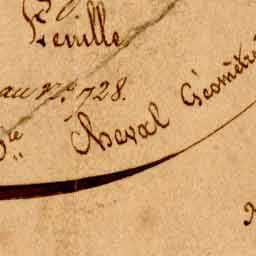 Feuille
au N.º 728.
Cheval Géomètre